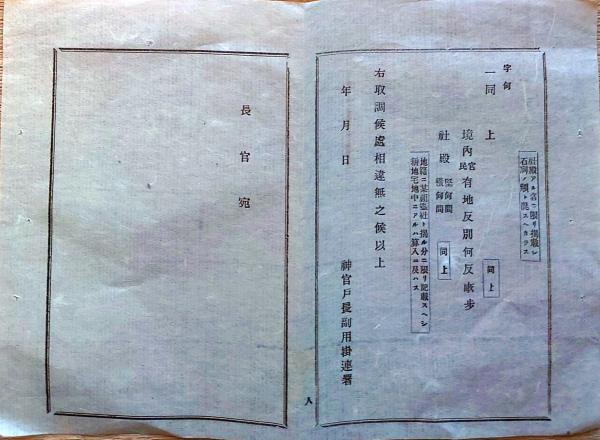 字何
一同上
社殿アル者ニ限リ掲載シ
石祠ノ類ト混スヘカラス
境内官民有地反別何反畝歩
同上
社殿 竪何間 横何間
同上
地籍ニ某組造社ト掲ル分ニ限リ記載スヘシ
耕地宅地中ニアルハ算入ニ及ハス
右取調候處相違無之候以上
年月日
神官戸長副用掛連署
長官宛
八